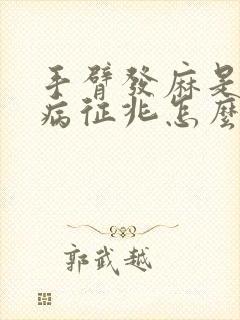 手臂發麻是
病征兆怎麼
郭武越